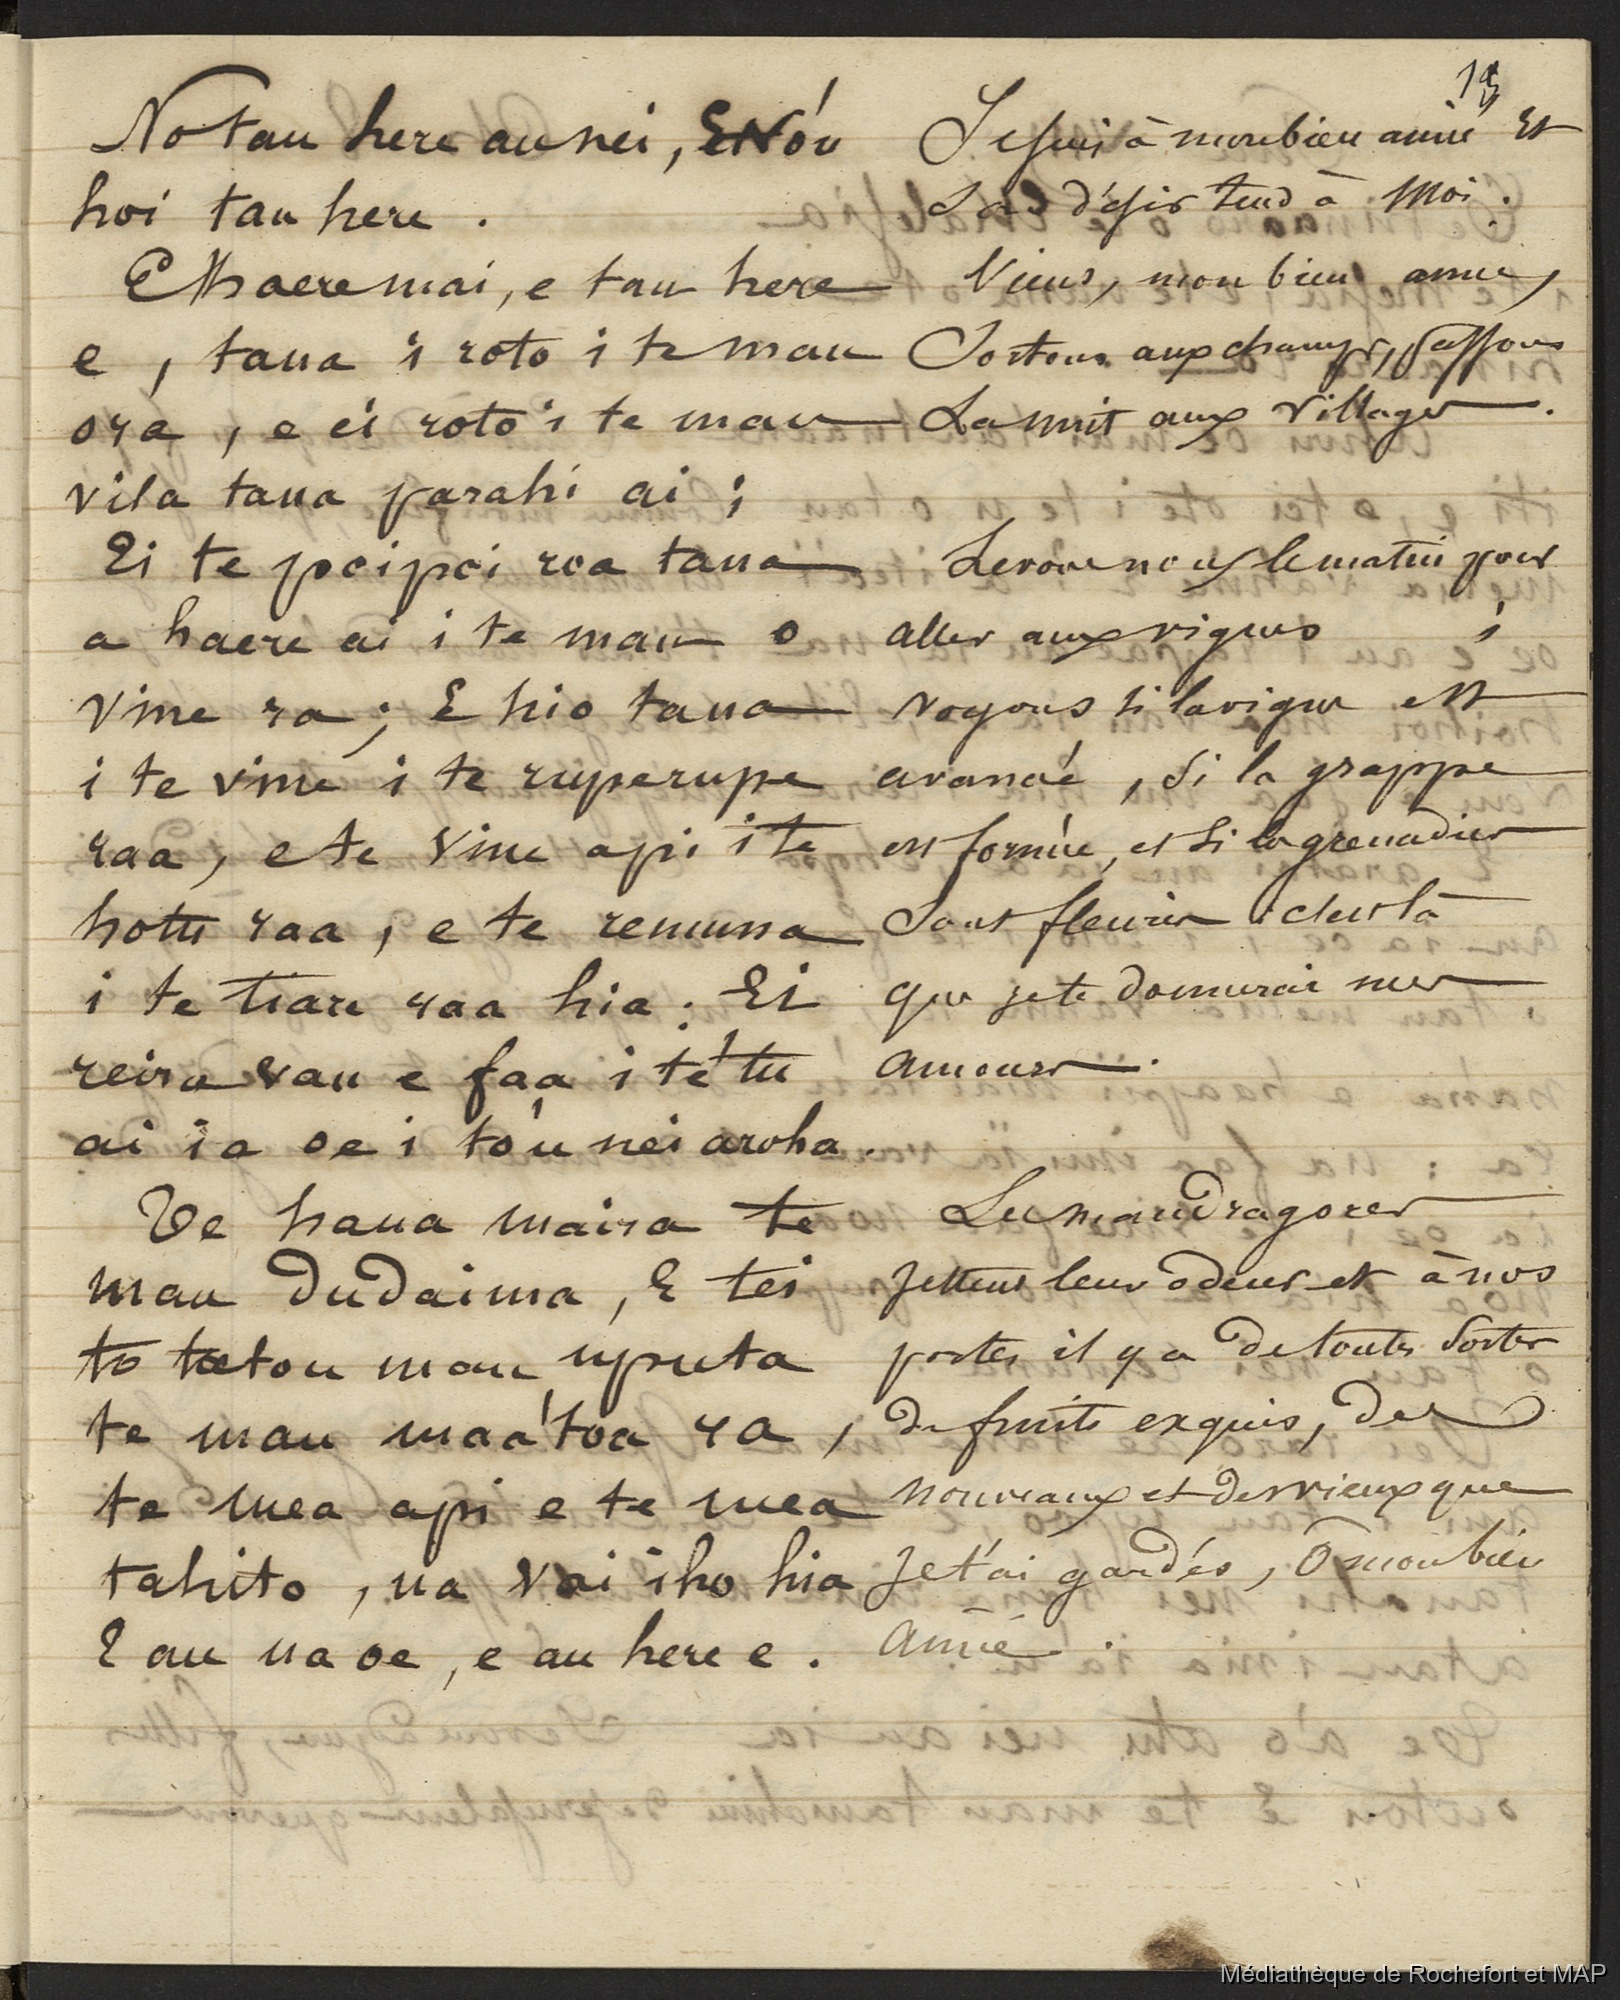 13
No tau here au nei, E No'u
hoi tau here.
E Haere mai, e tau here
e, taua i roto i te mau
ora, e ei roto i te mau
vila taua parahi ai;
Ei te poipoi roa taua
a haere ai i te mau o
vine ra; E hio taua
i te vine i te ruperupe
raa, e te vine api i te
hotu raa, e te remuna
i te tiare raa hia. Ei
reira vau e faa i té tu
ai ia oe i to'u nei aroha.
Te haua maira te
mau dudaima, E tei
to tatou mau uputa
te mau maa'toa ra,
te mea api e te mea
tahito, na vai iho hia
E au na oe, e au here e.
Je suis à mon bien aimé Et
Son désir tend à Moi.
Viens, mon bien aimé,
Sortons aux champs, passons
La nuit aux Villages.
Levons nous le matin pour
aller aux vignes;
voyons si la vigne est
avancée, si la grappe
est formée, et si les grenadiers
Sont fleuris; c'est là
que je te donnerai mes
amours.
Les mandragores
jettent leur odeur et à nos
portes il y a de toutes Sortes
de fruits exquis, des
nouveaux et des vieux que
Je t'ai gardés, O mon bien
Aimé.
Médiathèque de Rochefort et MAP